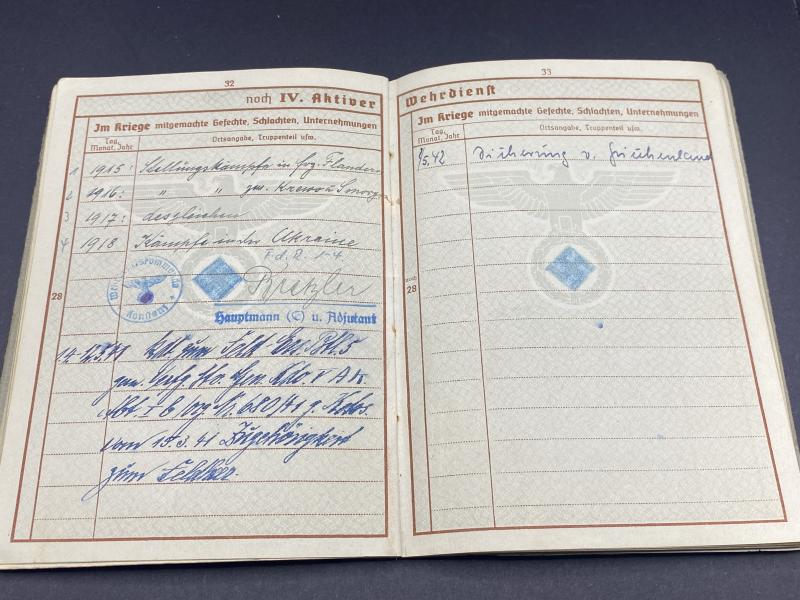 32
noch IV. Aktiver
Im Kriege mitgemachte Gefechte, Schlachten, Unternehmungen
Tag, Monat, Jahr
Ortsangabe, Truppenteil usw.
1 1915: Stellungskämpfe in frz. Flandern
2 1916: " " zw. Krewo u Smorgon
3 1917: desgleichen
4 1918 Kämpfe in der Ukraine
F.d.R. 1-4.
noch
28
Hauptmann (E) u. Adjutant
zum Feld-
Gen. Kdo. V A.K.
Nr. 680/41 g. Kdos.
vom 15.3.41 Zugehörigkeit
zum Feldheer.
33
Wehrdienst
Im Kriege mitgemachte Gefechte, Schlachten, Unternehmungen
Tag, Monat, Jahr
Ortsangabe, Truppenteil usw.
5.42 Sicherung v. Griechenland
noch
28